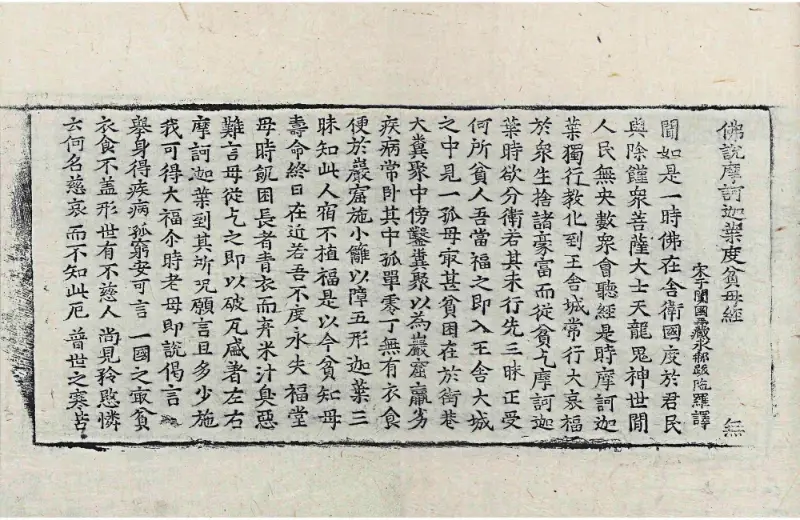 佛說摩訶迦葉度貧母經 無
宋于闐國三藏求那跋陁羅譯
聞如是一時佛在舍衛國度於君民
與除饉衆菩薩大士天龍鬼神世間
人民無央數衆會聽經是時摩訶迦
葉獨行教化到王舍城常行大哀福
於衆生捨諸豪富而從貧乞摩訶迦
葉時欲分衛若其未行先三昧正受
何所貧人吾當福之即入王舍大城
之中見一孤母㝡甚貧困在於街巷
大糞聚中傍鑿糞聚以為巖窟羸劣
疾病常卧其中孤單零丁無有衣食
便於巖窟施小籬以障五形迦葉三
昧知此人宿不植福是以今貧知母
壽命終日在近若吾不度永失福堂
母時飢困長者青衣而弃米汁臭惡
難言母從乞之即以破瓦盛著左右
摩訶迦葉到其所咒願言且多少施
我可得大福尒時老母即說偈言
舉身得疾病 孤窮安可言 一國之㝡貧
衣食不盖形 世有不慈人 尚見矜愍憐
云何名慈哀 而不知此厄 普世之寒苦